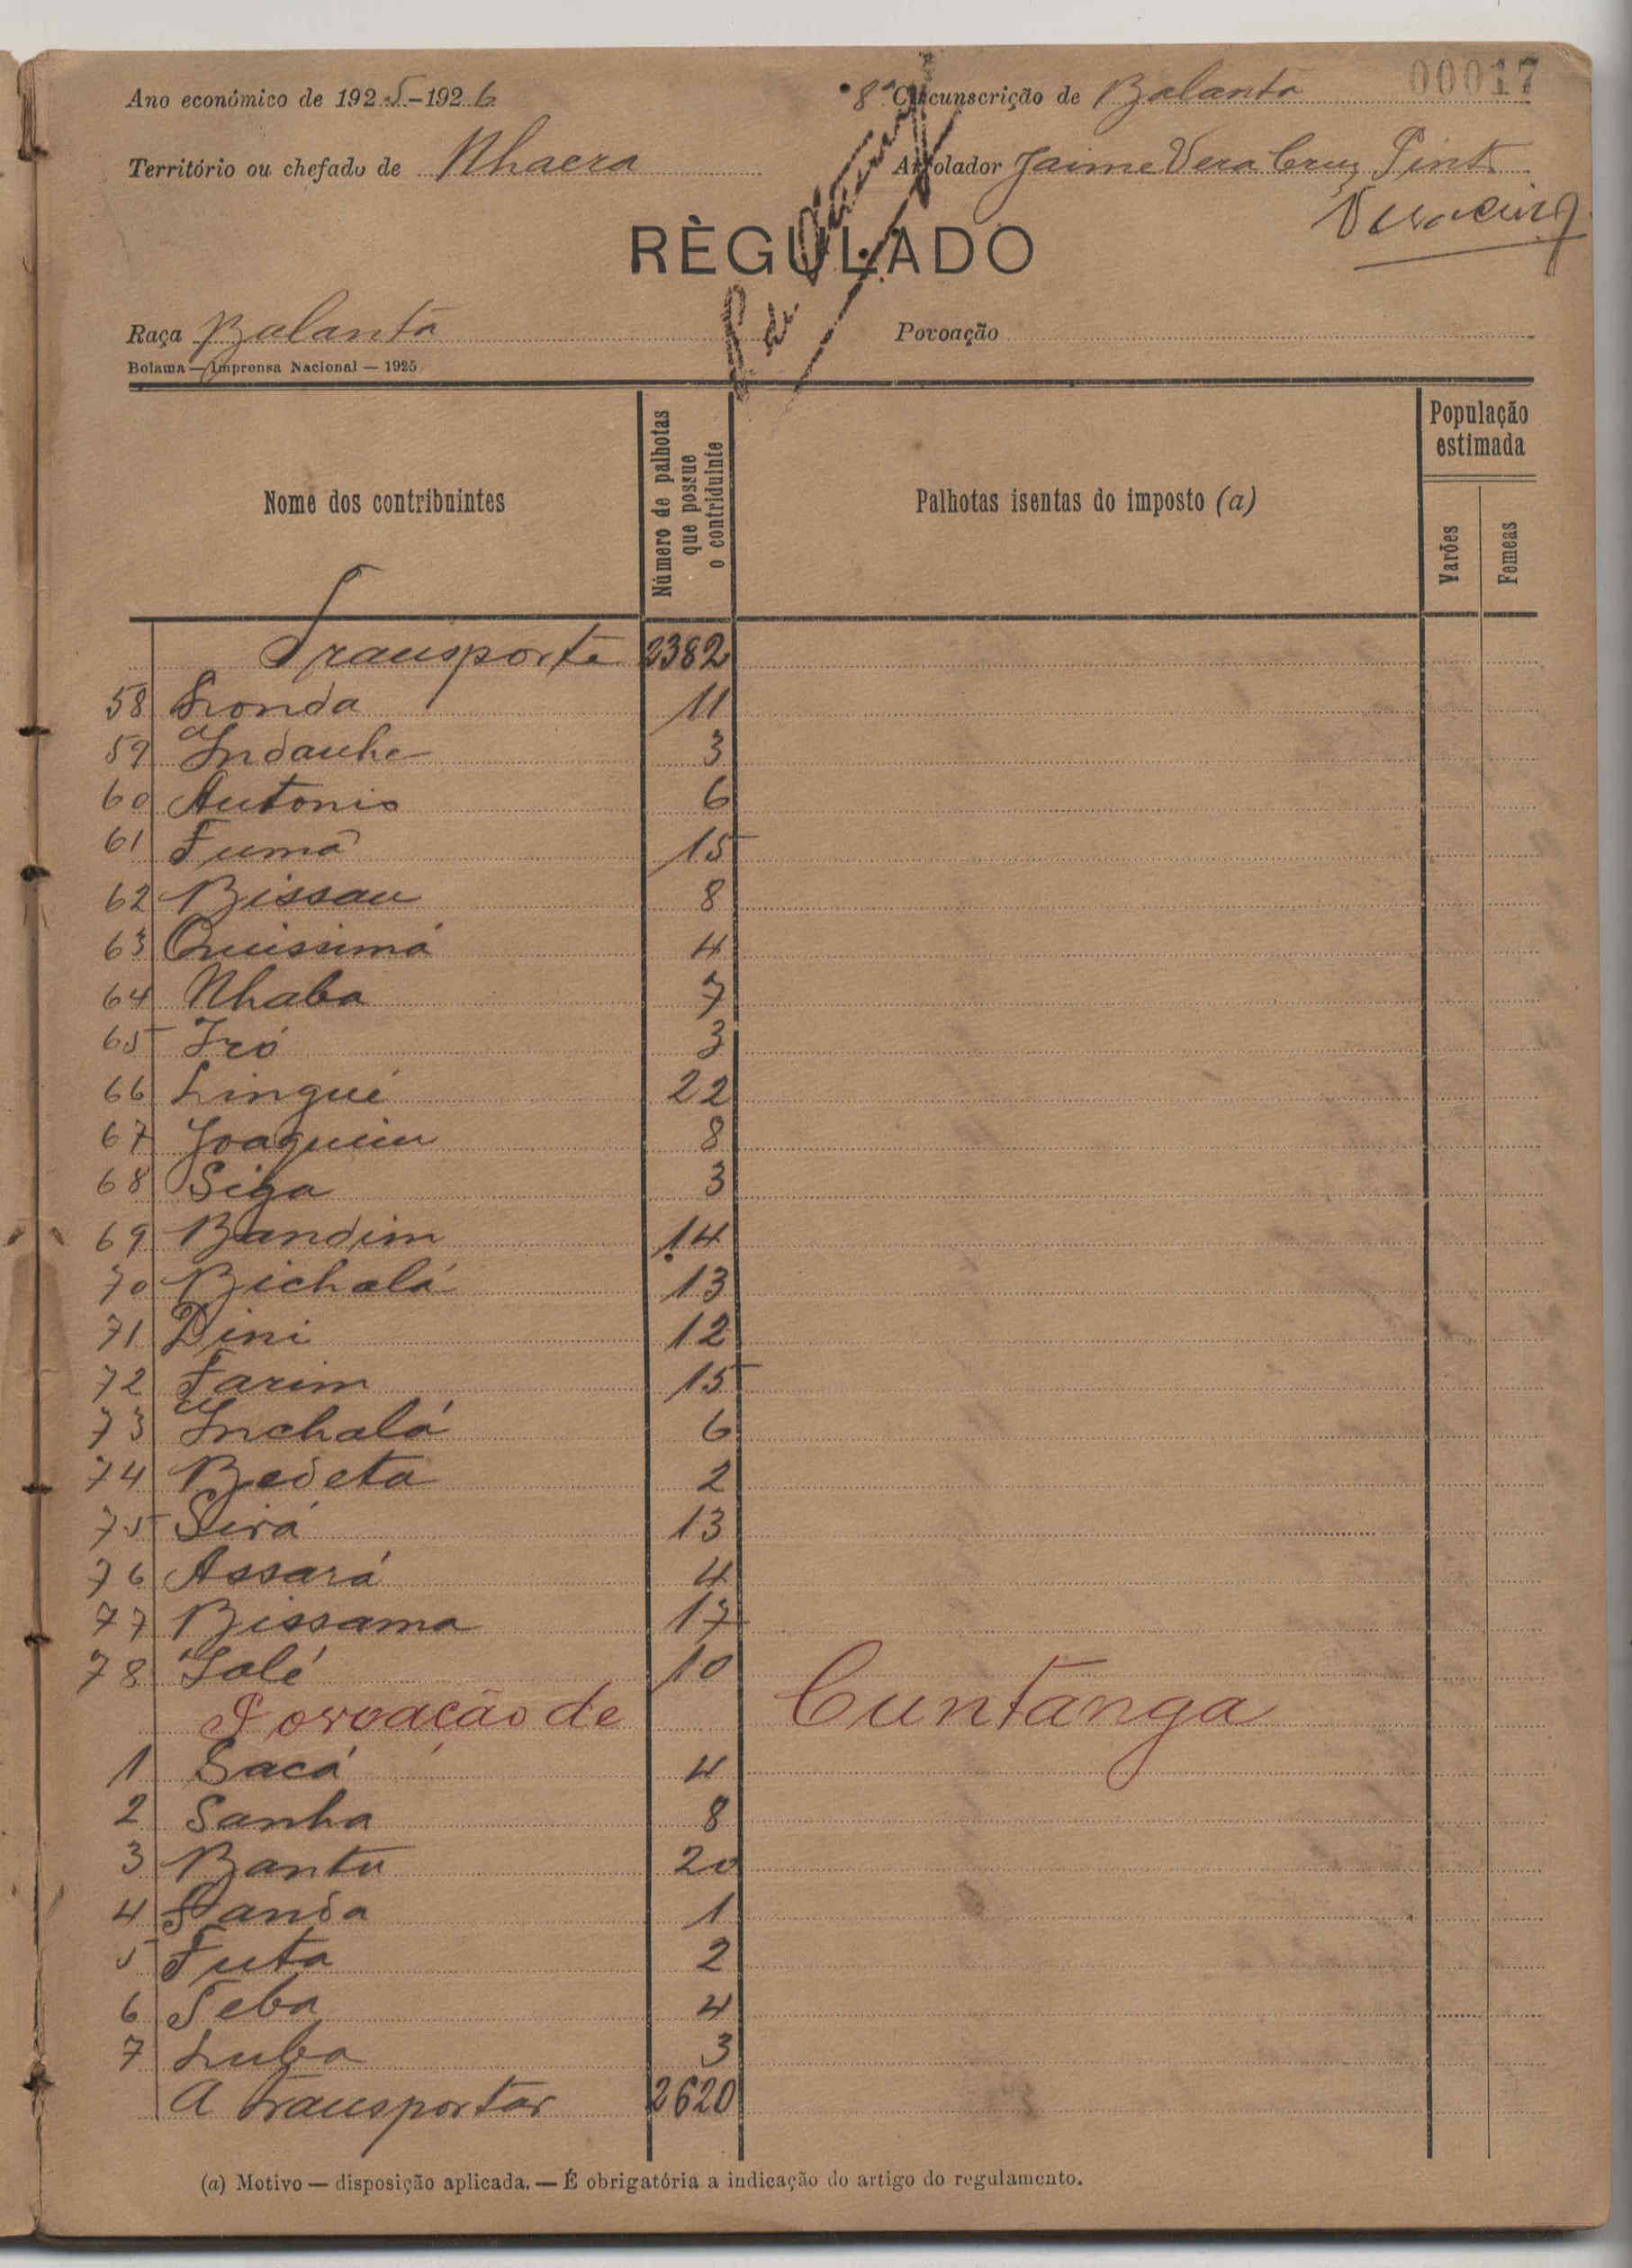 00017
Ano económico de 1925-1926
8ª Circunscrição de Balanta
Território ou chefado de Nhacra
Arrolador Jaime Vera Cruz Pinto
RÈGULADO
Raça Balanta
Povoação
Bolama — Imprensa Nacional — 1925
Nome dos contribuintes
Número de palhotas que possue o contriduinte
Palhotas isentas do imposto (a)
População estimada
Varões
Femeas
Transporte 2382
58 Londa 11
59 Indanhe 3
60 Antonio 6
61 Fumá 15
62 Bissau 8
63 Quissimá 4
64 Nhaba 7
65 Iró 3
66 Lingué 22
67 Joaquim 8
68 Siga 3
69 Bandim 14
70 Bichalá 13
71 Dini 12
72 Farim 15
73 Inchalá 6
74 Bedeta 2
75 Sirá 13
76 Assará 4
77 Bissama 17
78 Salé 10
Povoação de Cuntanga
1 Sacá 4
2 Sanha 8
3 Bantu 20
4 Sanda 1
5 Futa 2
6 Seba 4
7 Luba 3
A transportar 2620
(a) Motivo — disposição aplicada. — É obrigatória a indicação do artigo do regulamento.